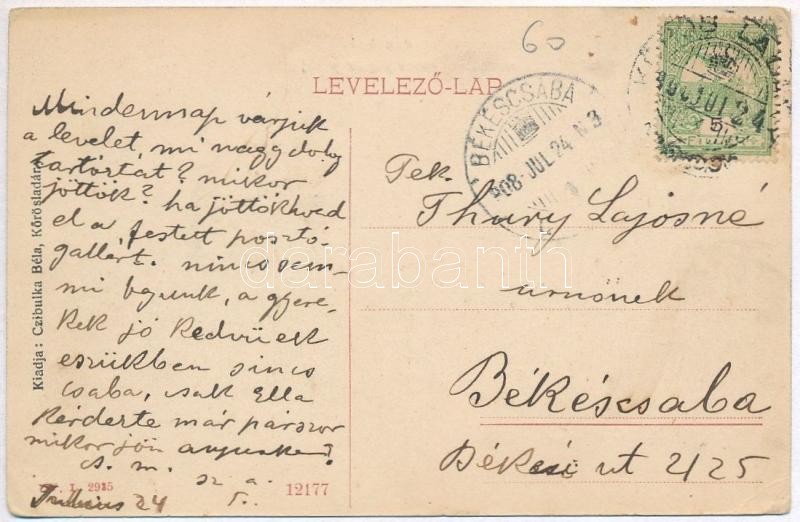 60
LEVELEZŐ-LAP
BÉKÉSCSABA
908 JUL 24 N 3
908 JUL 24
Mindennap várjuk
a levelet, mi nagy dolog
tartórtát? mikor
jöttök? ha jöttök hozd
el a festett posztó-
gallért. nincs sem-
mi bajunk, a gyere-
kek jó kedvüek
eszükben sincs
csaba, csak Ella
kérdezte már párszor
mikor jön anyuka?
Julius 24
Tek.
Thury Lajosné
urnőnek
Békéscsaba
Békési ut 2125
Kiadja: Czibulka Béla, Kőrösladány
L. 2935
12177
darabanth